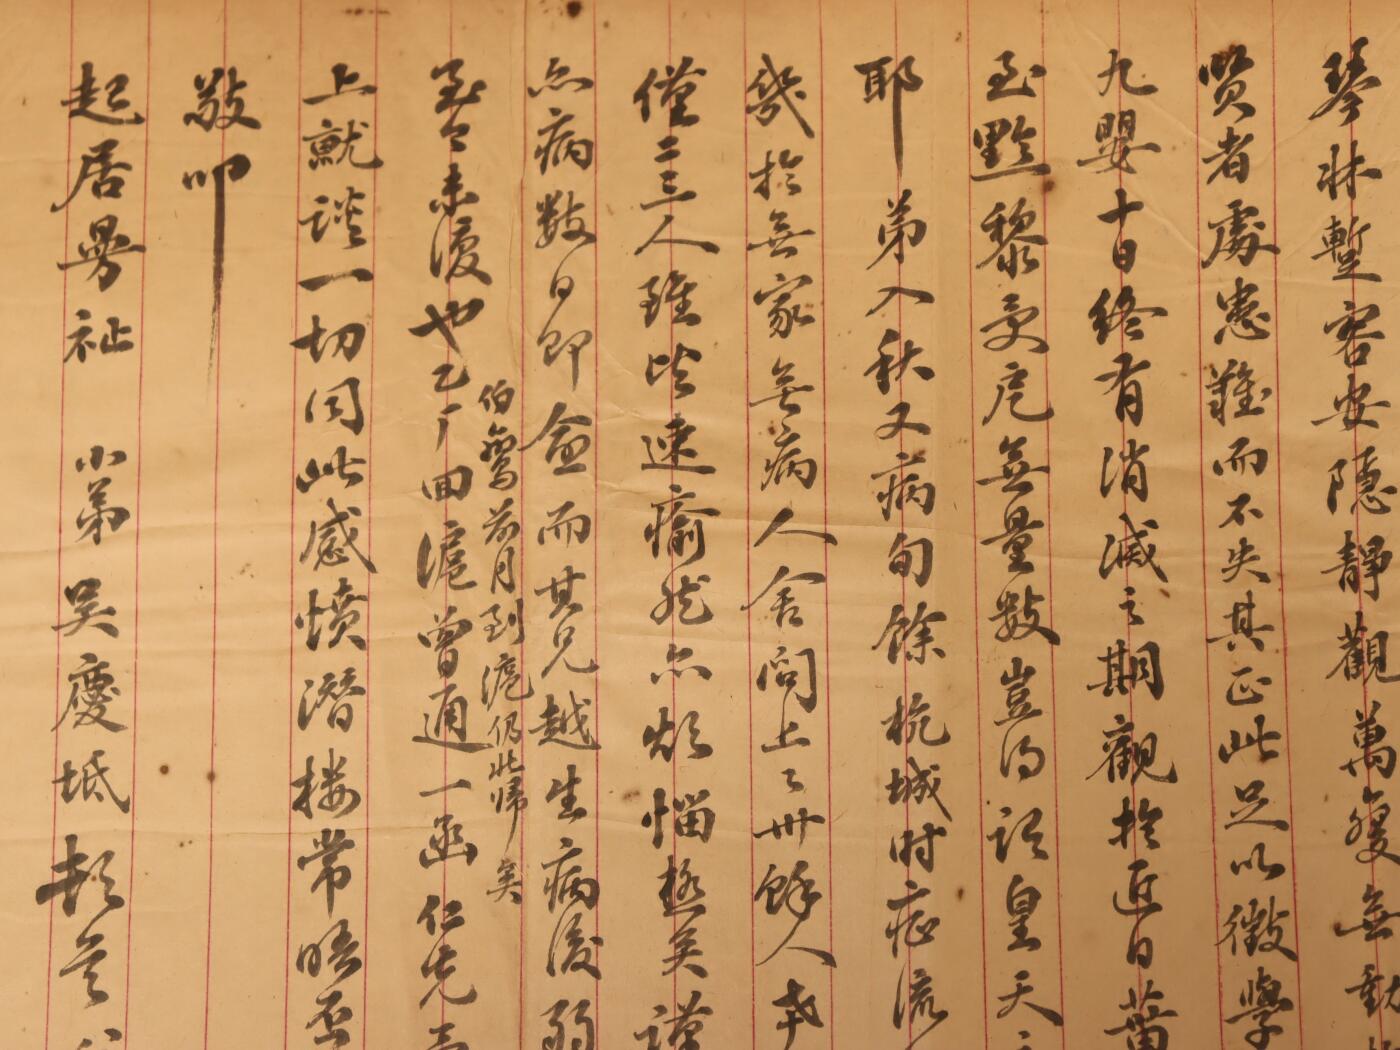 琴牀塹容安隱靜觀萬變無動
賢者處患難而不失其正此足以徵學
九嬰十日終有消滅之期觀於近日蕾
至黔黎受厄無量數豈得謂皇天
耶弟入秋又病旬餘杭城时症流
幾於無家無病人舍间上上卅餘人幸
僅二三人雖皆速瘉然亦煩惱極矣謹
亦病數日即愈而其兄越生病後弱
伯鸞前月到滬仍北歸矣
至今未復也乙厂回滬曾通一函仁先
上就談一切同此感憤潛樓常晤否
敬叩
起居曼祉 小弟吴慶坻頓首